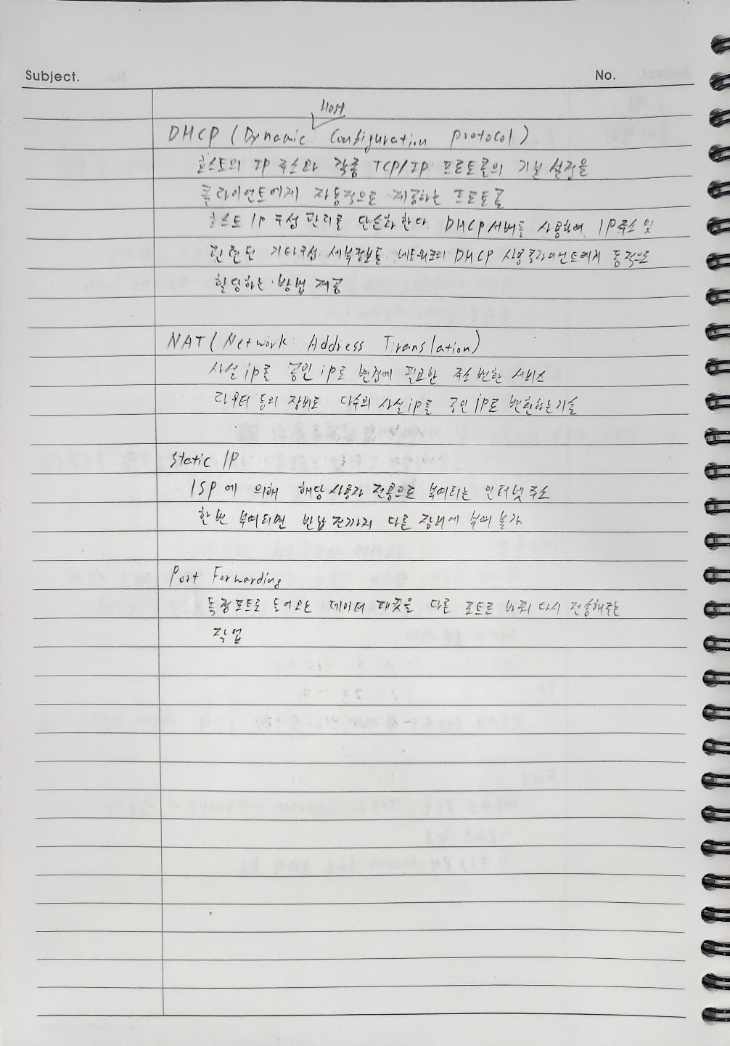 Subject.
No.
Host
DHCP (Dynamic Configuration protocol)
호스트의 IP 주소와 각종 TCP/IP 프로토콜의 기본 설정을
클라이언트에게 자동적으로 제공하는 프로토콜
호스트 IP 구성 관리를 단순화한다. DHCP 서버를 사용하여, IP주소 및
관련된 기타구성 세부정보를 네트워크의 DHCP 사용 클라이언트에게 동적으로
할당하는 방법 제공
NAT (Network Address Translation)
사설 ip를 공인 ip로 변경에 필요한 주소 변환 서비스
라우터 등의 장비로 다수의 사설 ip를 공인 ip로 변환하는 기술
Static IP
ISP에 의해 해당 사용자 전용으로 부여되는 인터넷 주소
한번 부여되면 반납 전까지 다른 장비에 부여 불가
Port Forwarding
특정 포트로 들어오는 데이터 패킷을 다른 포트로 바꿔 다시 전송해주는
작업